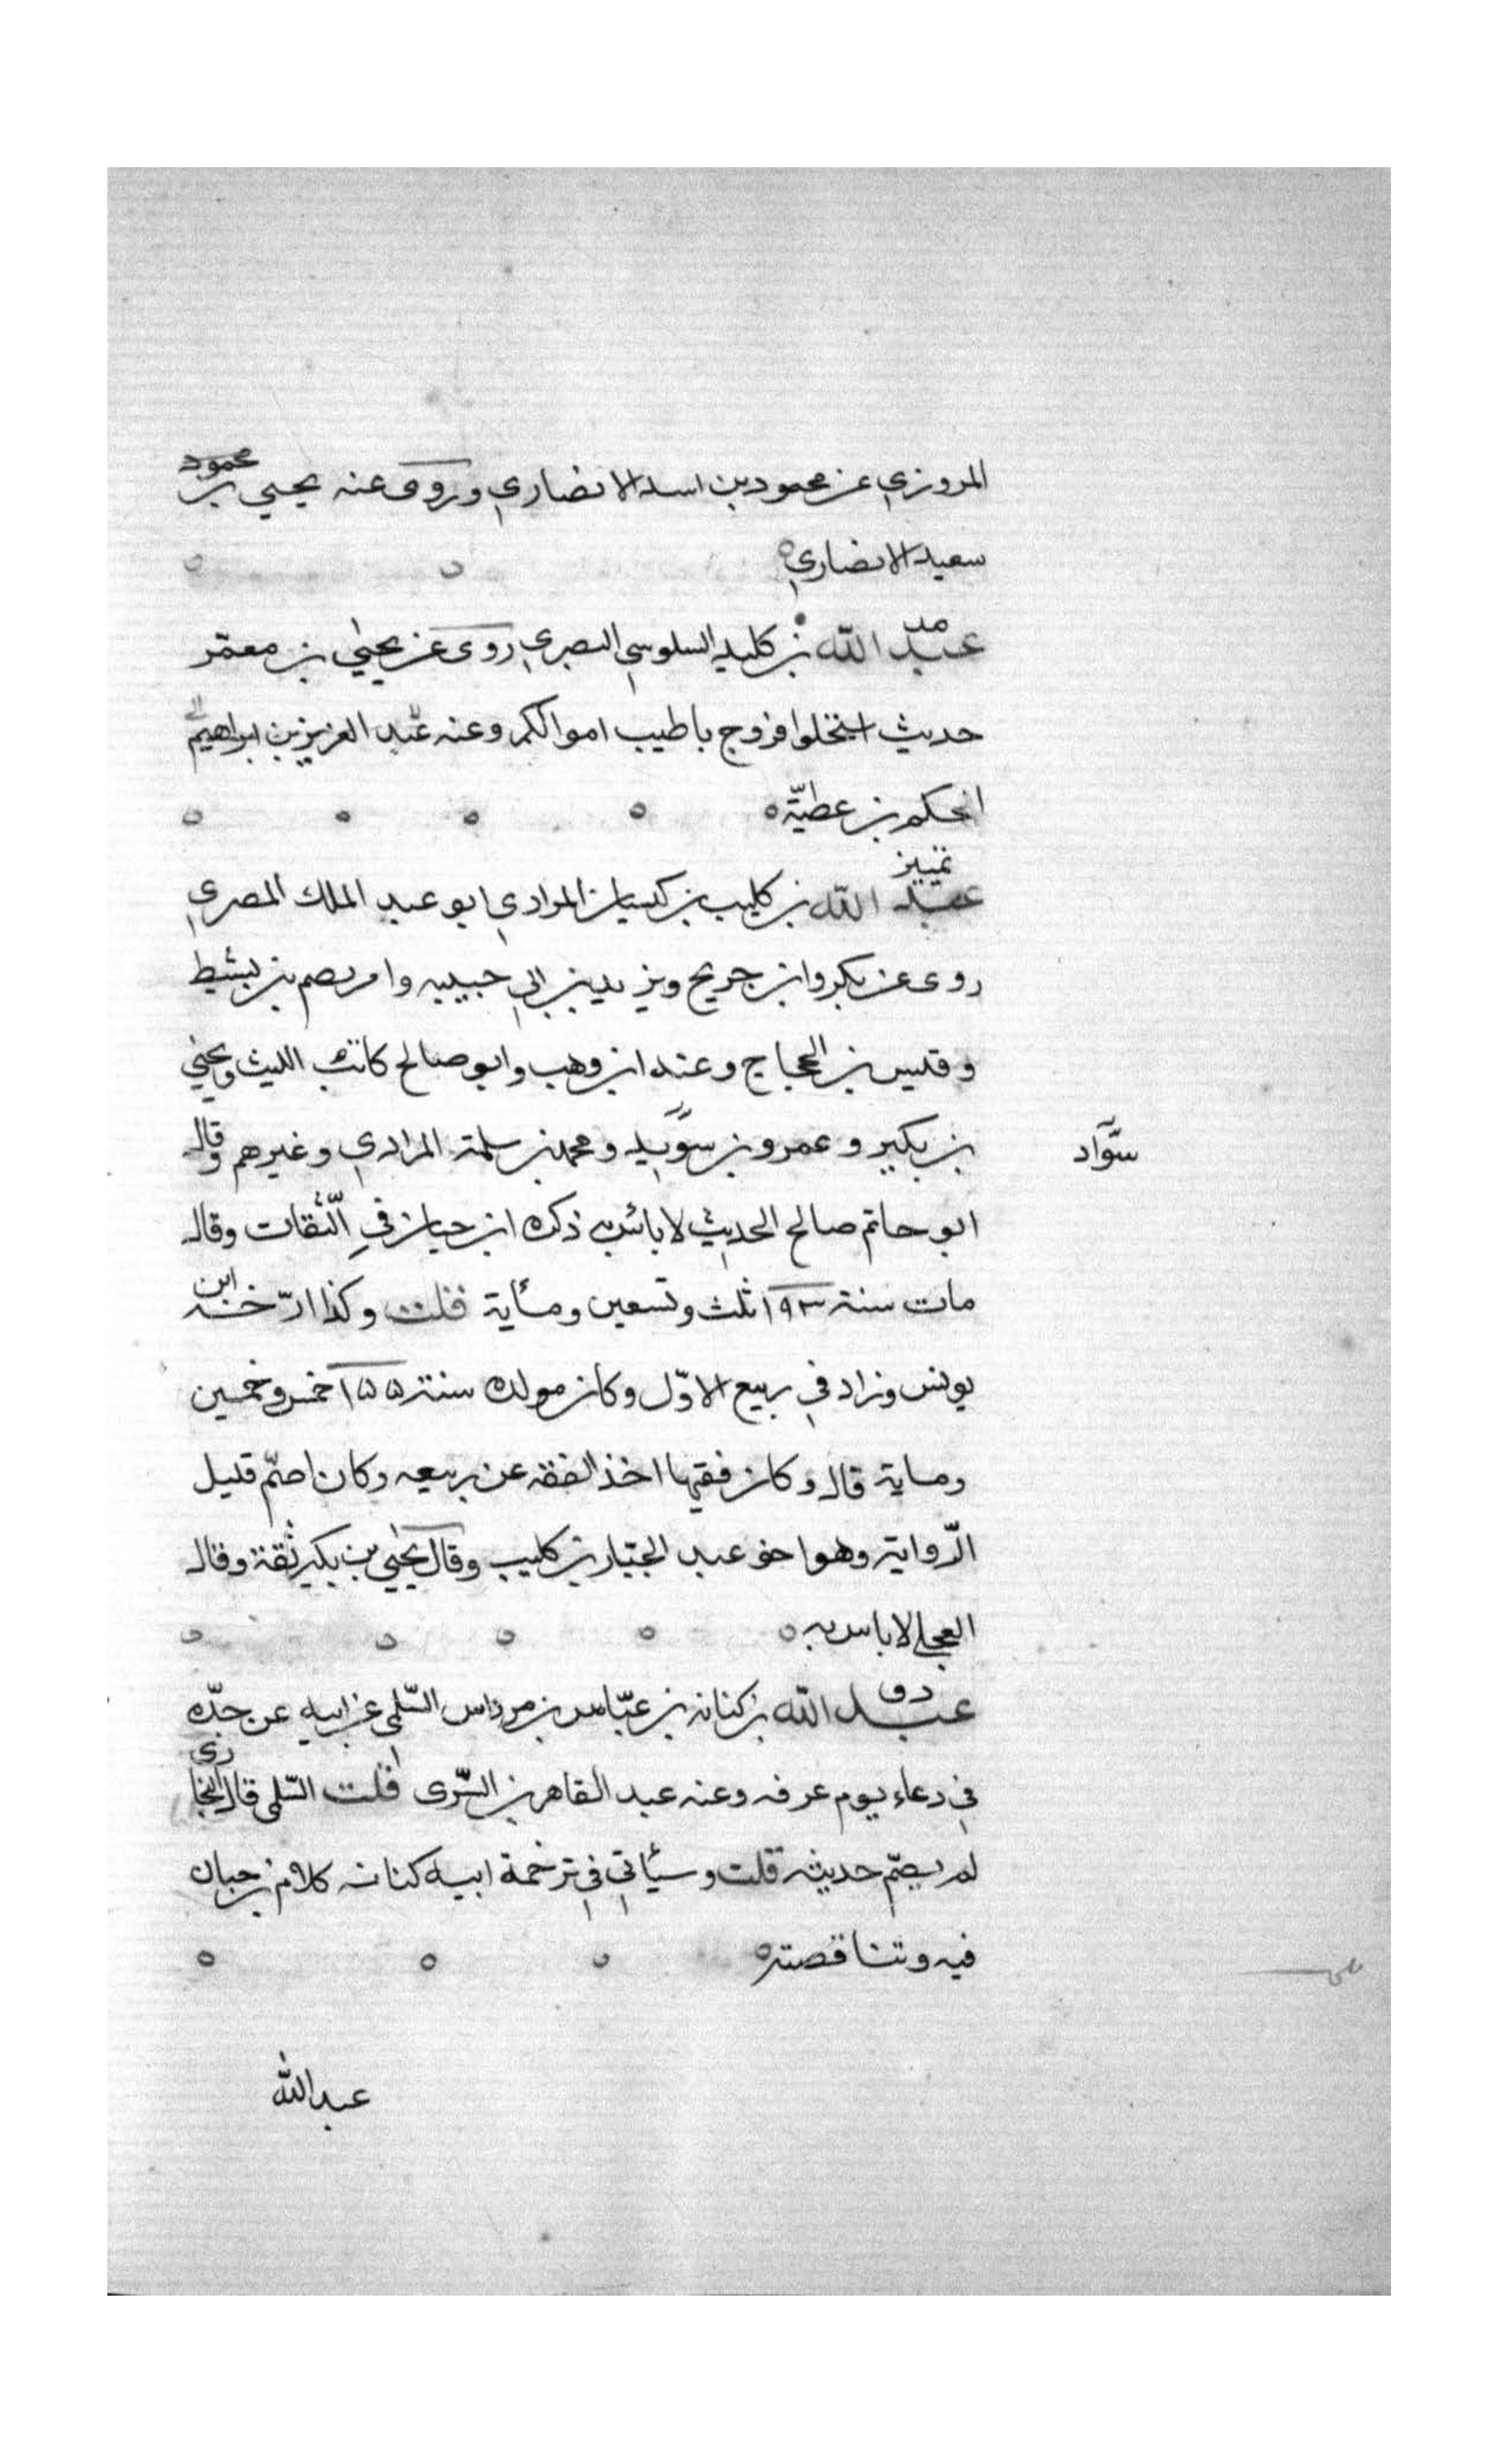 المروزي عن محمود بن اسد الانصاري وروى عنه يحيى بن محمود
سعيد الانصاري
مد
عبد الله بن كليد السلوسي البصري روى عن يحيى بن معمر
حديث استحلوا فروج باطيب اموالكم وعنه عبد العزيز بن ابراهيم
الحكم بن عطية
تمييز
عبد الله بن كليب بن كيسان المرادي ابو عبد الملك المصري
روى عن بكر وابن جريج ويزيد بن ابي حبيب بن بشيط
وقيس بن الحجاج وعنه ابن وهب وابو صالح كاتب الليث ويحيى
بن بكير وعمرو بن سويد ومحمد بن سلمة المرادي وغيرهم وقال
سوّاد
ابو حاتم صالح الحديث لا باس به ذكره ابن حبان في الثّقات وقال
مات سنة ١٩٣ ثلث وتسعين ومأية قلت وكذا ارّخه ابن
يونس وزاد في ربيع الاوّل وكان مولده سنة ١٥٥ خمس وخمسين
وماية قال وكان فقيها اخذ الفقه عن ربيعه وكان اصمّ قليل
الرّواية وهو اخو عبد الجبّار بن كليب وقال يحيى بن بكير ثقة وقال
العجلي لا باس به
د ق
عبد الله بن كنانه بن عبّاس بن مرداس السّلمي عن ابيه عن جدّه
في دعاء يوم عرفه وعنه عبد القاهر بن السّرى قلت السّلمي قال البخارى
لم يصحّ حديثه قلت وسيأتي في ترجمة ابيه كنانه كلام بن حبان
فيه وتناقضته
عبد الله